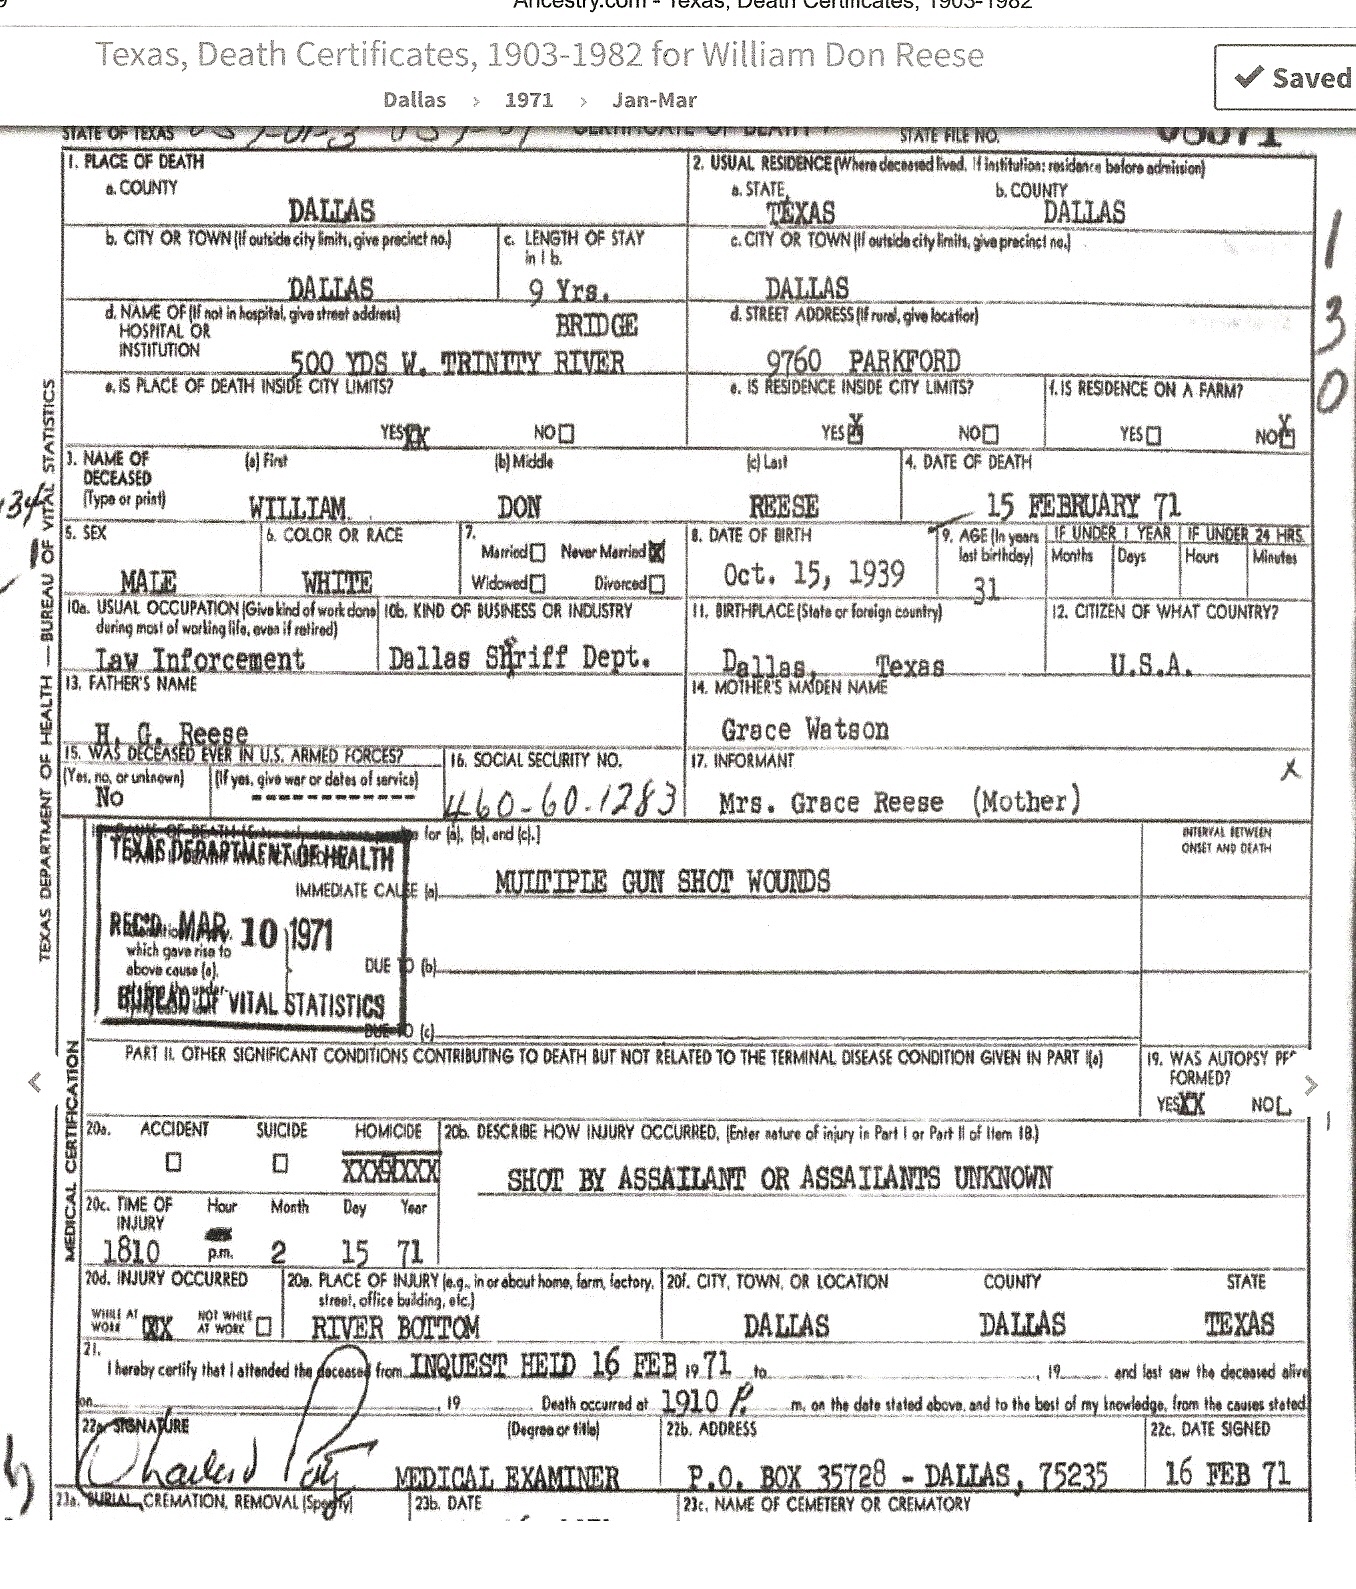 Ancestry.com - Texas, Death Certificates, 1903-1982
Texas, Death Certificates, 1903-1982 for William Don Reese
Saved
Dallas > 1971 > Jan-Mar
STATE OF TEXAS CERTIFICATE OF DEATH STATE FILE NO.
1. PLACE OF DEATH
a. COUNTY
DALLAS
2. USUAL RESIDENCE (Where deceased lived. If institution: residence before admission)
a. STATE b. COUNTY
TEXAS DALLAS
b. CITY OR TOWN (If outside city limits, give precinct no.)
DALLAS
c. LENGTH OF STAY
in 1 b.
9 Yrs.
c. CITY OR TOWN (If outside city limits, give precinct no.)
DALLAS
d. NAME OF (If not in hospital, give street address)
HOSPITAL OR
INSTITUTION
BRIDGE
500 YDS W. TRINITY RIVER
d. STREET ADDRESS (If rural, give location)
9760 PARKFORD
e. IS PLACE OF DEATH INSIDE CITY LIMITS?
YES XX NO
e. IS RESIDENCE INSIDE CITY LIMITS?
YES X NO
f. IS RESIDENCE ON A FARM?
YES NO X
1
3
0
TEXAS DEPARTMENT OF HEALTH — BUREAU OF VITAL STATISTICS
34
3. NAME OF
DECEASED
(Type or print)
(a) First (b) Middle (c) Last
WILLIAM. DON REESE
4. DATE OF DEATH
15 FEBRUARY 71
5. SEX
MALE
6. COLOR OR RACE
WHITE
7.
Married Never Married X
Widowed Divorced
8. DATE OF BIRTH
Oct. 15, 1939
9. AGE (In years
last birthday)
31
IF UNDER 1 YEAR
Months Days
IF UNDER 24 HRS.
Hours Minutes
10a. USUAL OCCUPATION (Give kind of work done
during most of working life, even if retired)
Law Inforcement
10b. KIND OF BUSINESS OR INDUSTRY
Dallas Shriff Dept.
11. BIRTHPLACE (State or foreign country)
Dallas, Texas
12. CITIZEN OF WHAT COUNTRY?
U.S.A.
13. FATHER'S NAME
H. G. Reese
14. MOTHER'S MAIDEN NAME
Grace Watson
15. WAS DECEASED EVER IN U.S. ARMED FORCES?
(Yes, no, or unknown) (If yes, give war or dates of service)
No
16. SOCIAL SECURITY NO.
460-60-1283
17. INFORMANT
X
Mrs. Grace Reese (Mother)
MEDICAL CERTIFICATION
for (a), (b), and (c).]
INTERVAL BETWEEN
ONSET AND DEATH
TEXAS DEPARTMENT OF HEALTH
IMMEDIATE CAUSE (a) MULTIPLE GUN SHOT WOUNDS
REC'D. MAR. 10 1971
which gave rise to
above cause (a),
DUE TO (b)
BUREAU OF VITAL STATISTICS
DUE TO (c)
PART II. OTHER SIGNIFICANT CONDITIONS CONTRIBUTING TO DEATH BUT NOT RELATED TO THE TERMINAL DISEASE CONDITION GIVEN IN PART I(a)
19. WAS AUTOPSY
FORMED?
YES XX NO
20a. ACCIDENT SUICIDE HOMICIDE
20b. DESCRIBE HOW INJURY OCCURRED. (Enter nature of injury in Part I or Part II of Item 18.)
SHOT BY ASSAILANT OR ASSAILANTS UNKNOWN
20c. TIME OF
INJURY
Hour Month Day Year
1810 p.m. 2 15 71
20d. INJURY OCCURRED
WHILE AT
WORK
NOT WHILE
AT WORK
20e. PLACE OF INJURY (e.g., in or about home, farm, factory,
street, office building, etc.)
RIVER BOTTOM
20f. CITY, TOWN, OR LOCATION COUNTY STATE
DALLAS DALLAS TEXAS
21.
I hereby certify that I attended the deceased from INQUEST HELD 16 FEB 19 71 to , 19 and last saw the deceased alive
on , 19 Death occurred at 1910 P. m. on the date stated above, and to the best of my knowledge, from the causes stated.
22a. SIGNATURE (Degree or title)
MEDICAL EXAMINER
22b. ADDRESS
P.O. BOX 35728 - DALLAS, 75235
22c. DATE SIGNED
16 FEB 71
23a. BURIAL, CREMATION, REMOVAL (Specify) 23b. DATE 23c. NAME OF CEMETERY OR CREMATORY